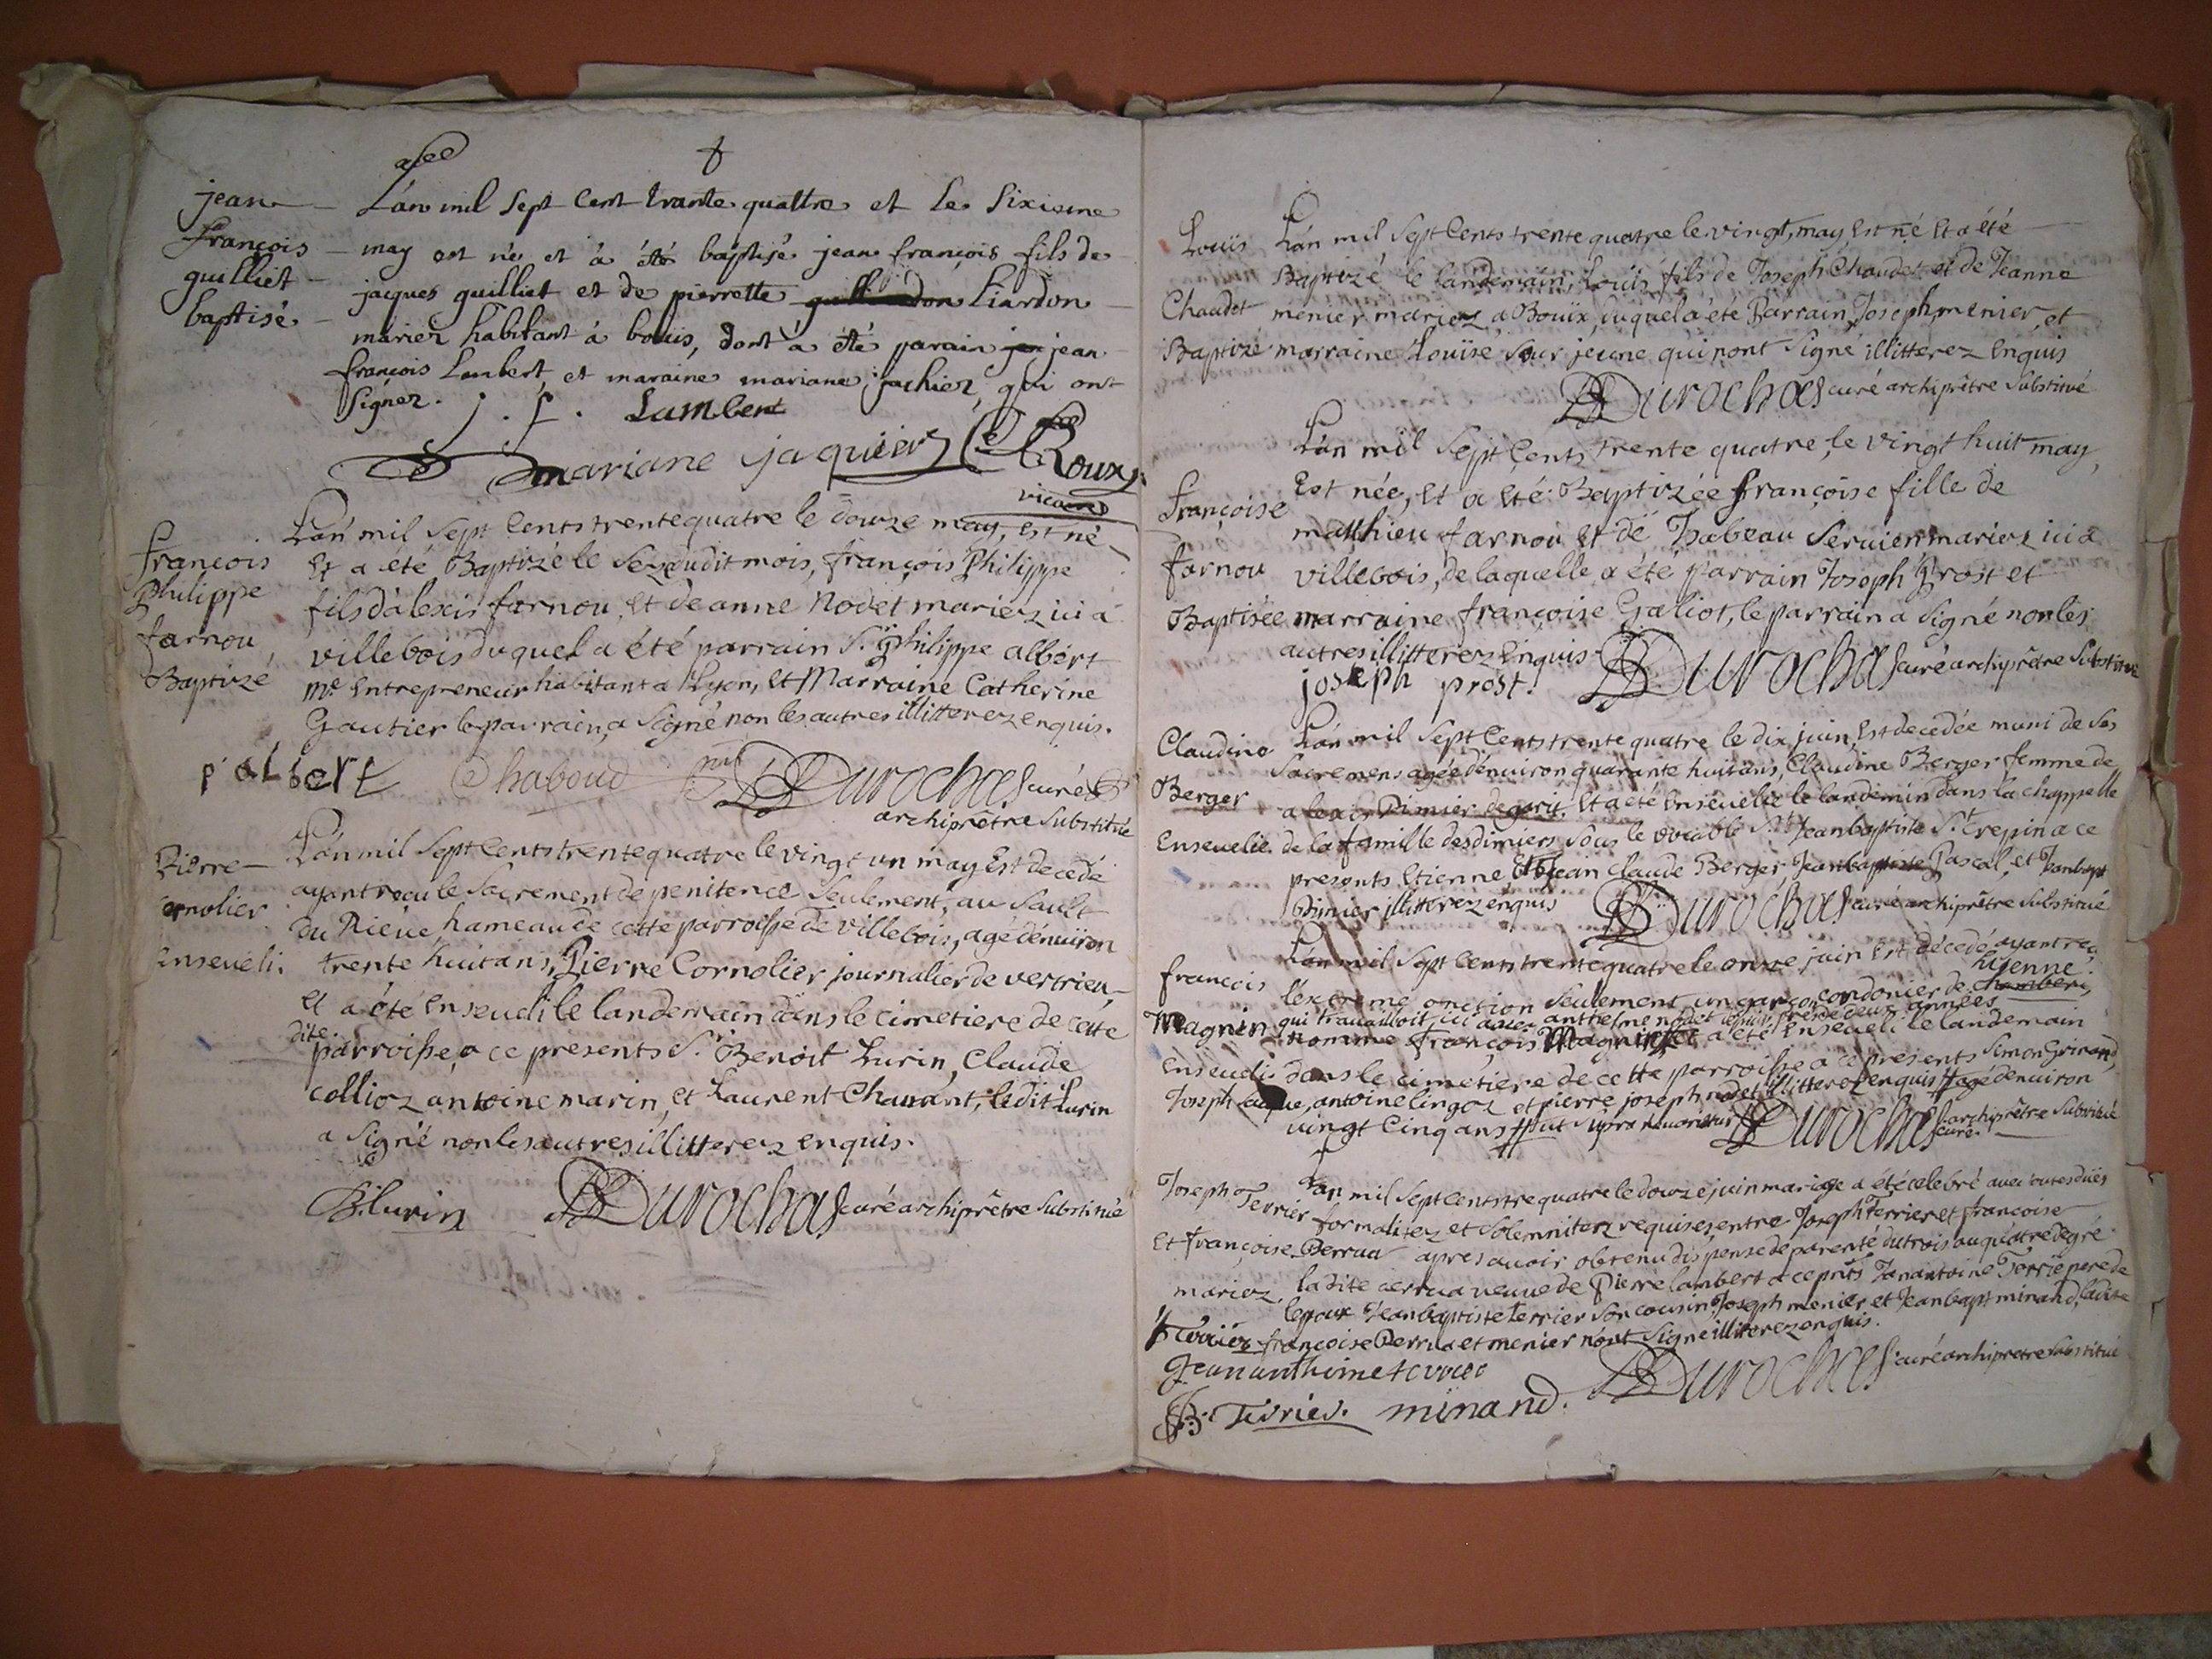 jean
françois
guilliet
baptisé
L'an mil sept cent trante quattre et le sixieme
may est né et à été baptisé jean françois fils de
jacques guilliet et de pierrette Liardon
mariez habitant à boüis, dont à été parain jean
françois Lambert et maraine mariane jachier, qui ont
signez. j. f. Lambert
mariane jaquier Le Roux
vicaire
françois
Philippe
farnou
Baptizé
L'an mil sept Cents trente quatre le douze may, est né
Et a été Baptizé le seze dudit mois, françois Philippe
fils d'alexis farnou, et de anne Nodet mariez ici a
villebois duquel a été parrain S.r philippe albert
M.e Entrepreneur habitant a Lyon, et Marraine Catherine
Gautier le parrain, a signé non les autres illitterez enquis.
p albert Chaboud Durochas curé
archiprêtre substitué
Pierre
Cornolier
Enseveli.
L'an mil sept Cents trente quatre le vingt un may Est decedé
ayant recu le sacrement de penitence seulement, au Sault
du Riéve hameau de cette parroisse de villebois, agé d'enuiron
trente huit ans, Pierre Cornolier journalier de vertrieu,
et a été enseveli le landemain dans le cimetiere de cette
dite
parroisse, a ce presents S.r Benoit Lurin, Claude
collioz antoine marin, et Laurent Chanant, ledit Lurin
a signé non les autres illitterez enquis.
B. Lurin Durochas curé archiprêtre substitué
Louis
Chaudet
Baptizé
L'an mil sept Cents trente quatre le vingt, may, est né et a été
Baptizé le landemain, Louis fils de Joseph Chaudet et de Jeanne
menier mariez a Boüix, duquel a été Parrain, Joseph menier, et
marraine Louïse Sour jeune qui n'ont signé illitterez Enquis
Durochas curé archiprêtre substitué
françoise
farnou
Baptisée
L'an mil sept Cents trente quatre, le vingt huit may,
Est née, et a eté Baptizée françoise fille de
matthieu farnou et de Isabeau Seruien mariez ici a
villebois, de laquelle a été parrain Joseph Prost et
marraine françoise Galiot, le parrain a signé non les
autres illitterez Enquis
joseph prost. Durochas curé archiprêtre substitué
Claudine
Berger
Enseuelie
L'an mil sept Cents trente quatre le dix juin, Est decedée muni de ses
sacremens agée d'enuiron quarante huit ans, Claudine Berger femme de
alexis Dimier et a été Enseuelie le landemin dans la chappelle
de la famille des dimiers sous le vocable S.t Jean baptiste S.t Crepin a ce
presents Etienne Et Jean Claude Berger, Jean baptiste Pascal, et Jean bapt
Dimier illitterez énquis Durochas curé archiprêtre substitué
françois
Magnin
Enseueli
L'an mil sept Cents trente quatre le onze juin est décedé ayant recu
l'extreme onction seulement un garçon cordonier de chamberi,
hyenne
qui travailloit ici auec anthelme nodet depuis pres de deux années
nomme françois Magnin et a été Enseueli le landemain
dans le cimetiere de cette parroisse a ce presents Simon Grinand,
Joseph, antoine lingoz et pierre joseph nodet illitterez enquis agé denuiron
vingt Cinq ans ut supra Durochas archiprêtre substitué
curé
Joseph
Terrier
Et françoise Perrua
mariez
L'an mil sept cents tre quatre le douze juin mariage a été celebré avec toutes dües
formalitez et solemnitez requises, entre Joseph Terrier et francoise
Perrua apres auoir obtenu dispense de parenté du trois au quatre degré
ladite Perrua veuue de Pierre lambert a ce pnts Jan antoine Terrie pere de
lepoux Jean baptiste terrier son cousin Joseph menier et Jean bapt minand, ladite
francoise Perrua et menier n'ont signé illitterez enquis.
Jean anthoine terrier Durochas curé archipretre substitué
J B. Terrier. minand.